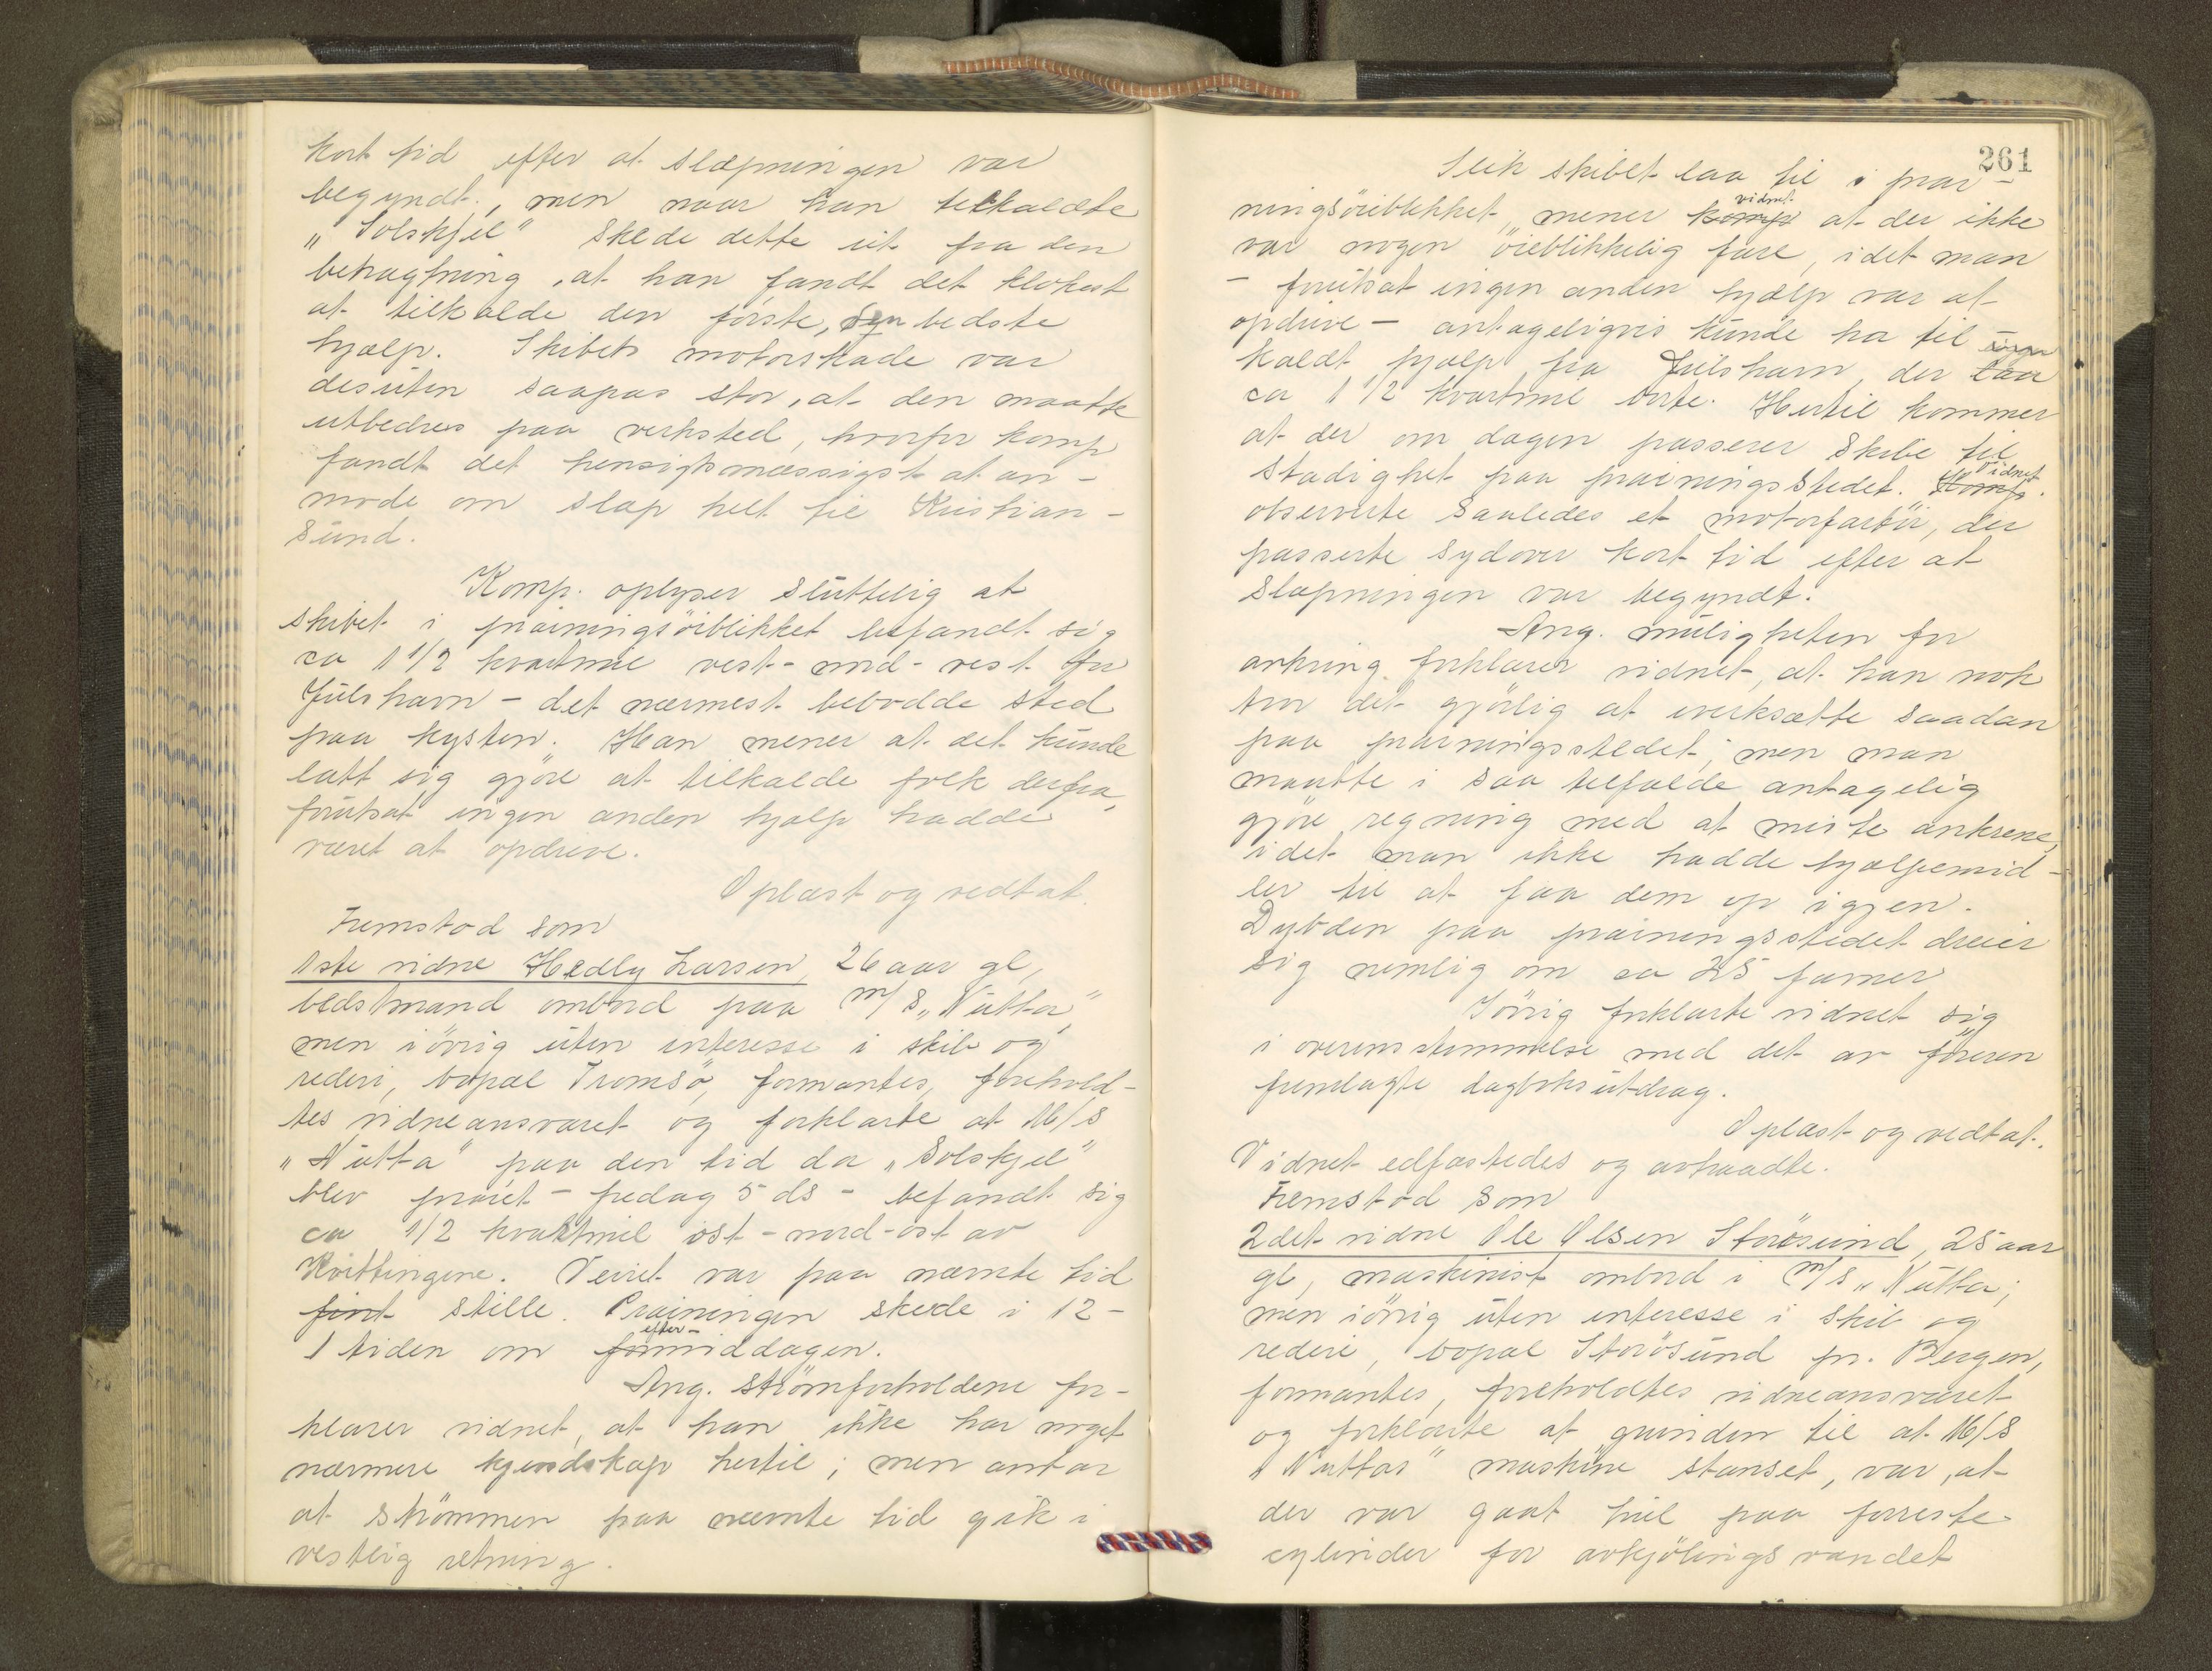 kort tid efter at slæpningen var
begyndt, men naar han tilkaldte
„Solskjel” skede dette ut fra den
betragtning, at han fandt det klokest
at tilkalde den første, den bedste
hjælp. Skibets motorskade var
desuten saapas stor, at den maatte
utbedres paa verksted, hvorfor komp
fandt det hensigtsmæssigst at an-
mode om slæp helt til Kristian-
sund.
Komp. oplyser sluttelig at
skibet i prainingsöiblikket befandt sig
ca 1 1/2 kvartmil vest-nord-vest for
Julshavn - det nærmest bebodde sted
paa kysten. Han mener at det kunde
latt sig gjöre at tilkalde folk derfra,
forutsat ingen anden hjælp hadde
været at opdrive.
Oplæst og vedtat.
Fremstod som
1ste vidne Hedly Larsen, 26 aar gl,
bedstmand ombord paa m/s „Nutta”,
men iövrig uten interesse i skib og
rederi, bopæl Tromsö, formantes, forehold-
tes vidneansvaret og forklarte at M/S
„Nutta” paa den tid da „Solskjel”
blev praiet - fredag 5 ds - befandt sig
ca 1/2 kvartmil öst-nord-öst av
Kvittingene. Veiret var paa nævnte tid
fint stille. Prainingen skede i 12-
1 tiden om formiddagen.
efter-
Ang. strömforholdene for-
klarer vidnet, at han ikke har noget
nærmere kjendskap hertil; men antar
at strömmen paa nævnte tid gik i
vestlig retning.
261
Slik skibet laa til i prai-
ningsöieblikket, mener komp vidnet at der ikke
var nogen öieblikkelig fare, idet man
- forutsat ingen anden hjælp var at
opdrive - antageligvis kunde ha til
kaldt hjælp fra Julshavn, der laa
ca 1 1/2 kvartmil borte. Hertil kommer
at der om dagen passerer skibe til
stadighet paa prainingsstedet. Komp. Vidnet
observerte saaledes et motorfartöi, der
passerte sydover kort tid efter at
slæpningen var begyndt.
Ang. muligheten for
ankring forklarer vidnet, at han nok
tror det gjörlig at iverksætte saadan
paa prainingsstedet; men man
maatte i saa tilfælde antagelig
gjöre regning med at miste ankrene,
idet man ikke hadde hjælpemid-
ler til at faa dem op igjen.
Dybden paa prainingsstedet dreier
sig nemlig om ca 25 favner
Iövrig forklarte vidnet sig
i overensstemmelse med det av föreren
fremlagte dagboksutdrag.
Oplæst og vedtat.
Vidnet edfæstedes og avtraadte.
Fremstod som
2det vidne Ole Olsen Storösund, 25 aar
gl, maskinist ombord i m/s „Nutta;
men iövrig uten interesse i skib og
rederi, bopæl Storösund pr. Bergen,
formantes, foreholdtes vidneansvaret
og forklarte at grunden til at M/S
„Nuttas” maskine stanset, var, at
der var gaat hul paa forreste
cylinder for avkjölingsvandet